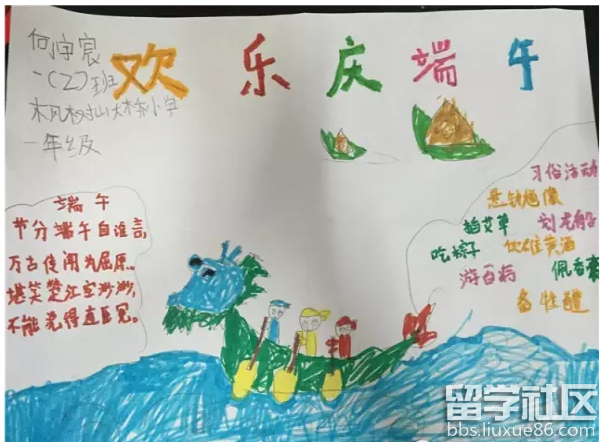 何宇宸
一(2)班
枫树山大桥小学
一年级
欢乐庆端午
端午
节分端午自谁言,
万古传闻为屈原。
堪笑楚江空渺渺,
不能洗得直臣冤。
习俗活动
悬钟馗像
艾草
划龙船
吃粽子
饮雄黄酒
游百病
佩香囊
备牲醴
留学社区
bbs.liuxue86.com